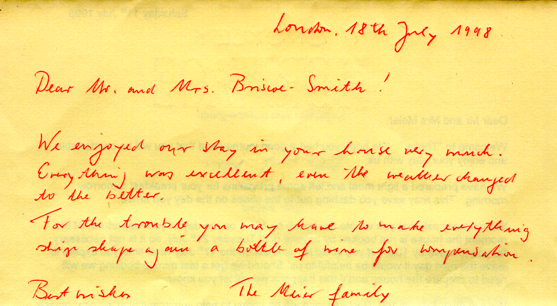 London, 18th July 1998
Dear Mr. and Mrs. Briscoe-Smith!
We enjoyed our stay in your house very much.
Everything was excellent, even the weather changed
to the better.
For the trouble you may have to make everything
ship shape again a bottle of wine for compensation.
Best wishes The Meier family